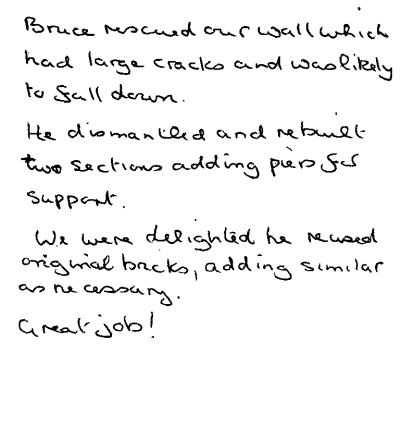 Bruce rescued our wall which
had large cracks and was likely
to fall down.
He dismantled and rebuilt
two sections adding piers for
support.
We were delighted he reused
original bricks, adding similar
as necessary.
Great job!